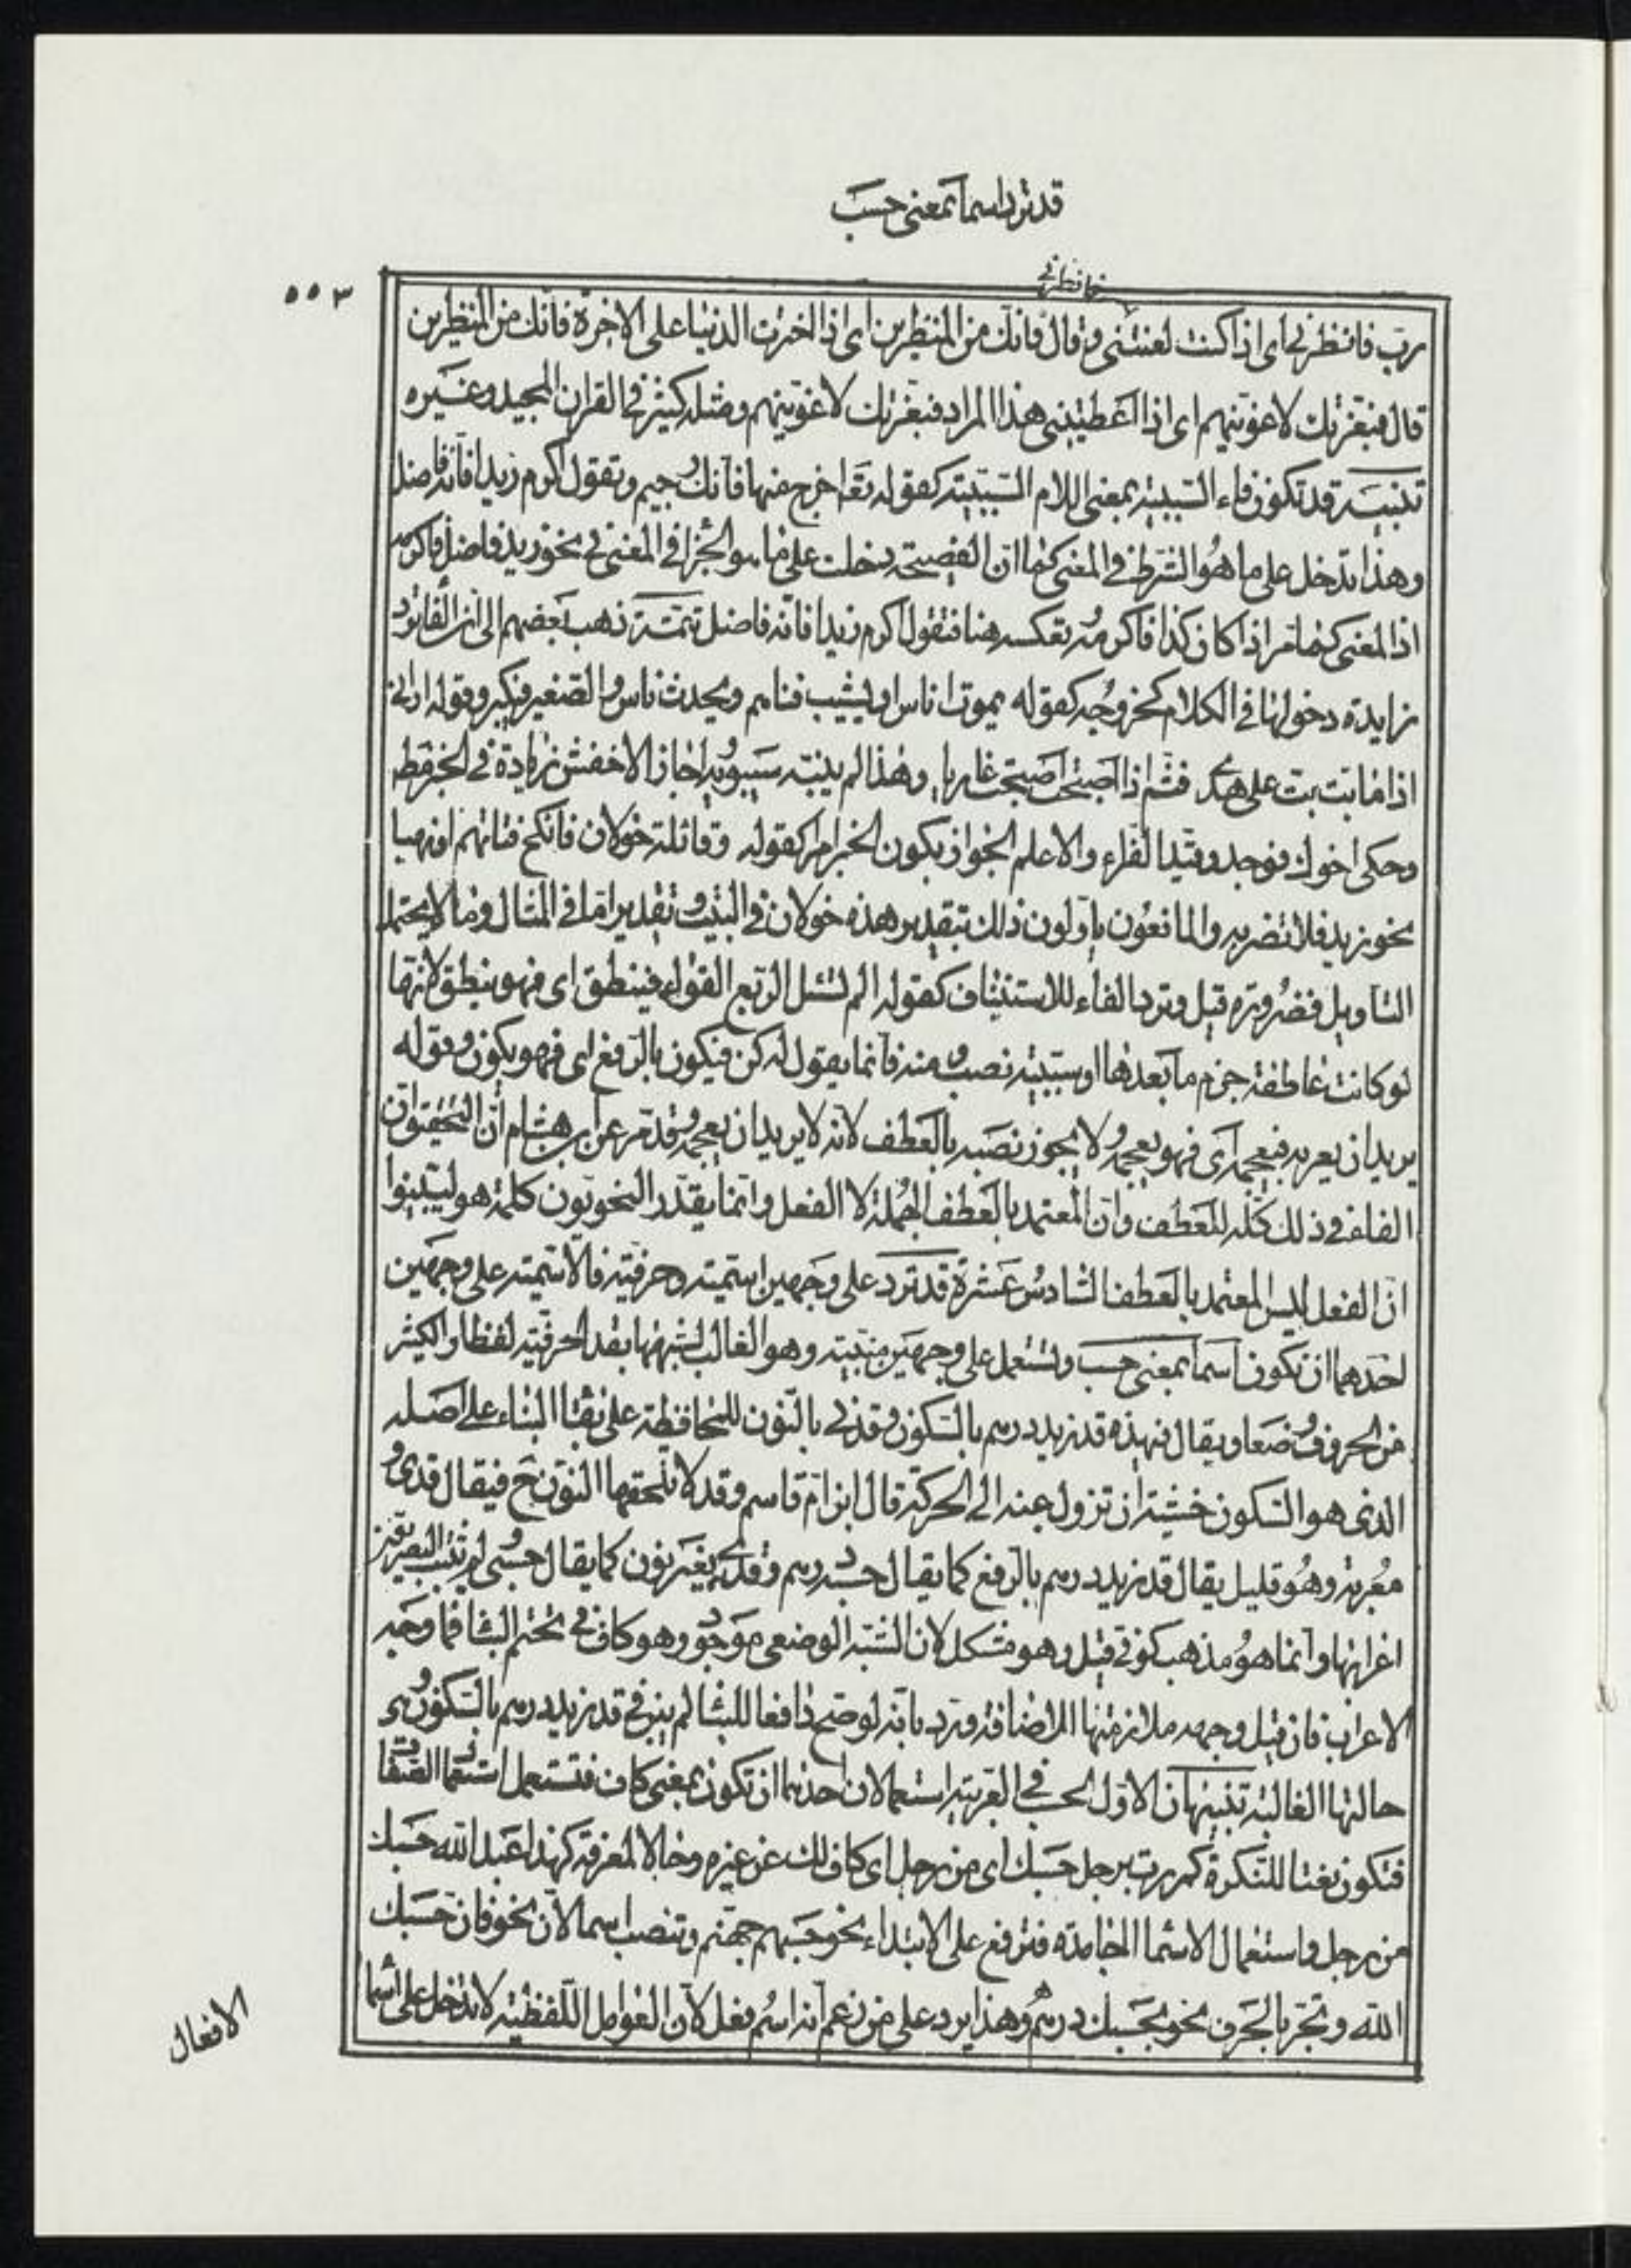 قد ترد اسما بمعنى حسب
٥٥٣
فانظرني
رب فانظرني اى اذا كنت لعنتنى وقال فانك من المنظرين اى اذا اخترت الدنيا على الاخرة فانك من المنظرين
قال فبعزتك لاغوينهم اى اذا اعطيتنى هذا المراد فبعزتك لاغوينهم ومثله كثير فى القران المجيد وغيره
تنبيه قد تكون فاء السببية بمعنى اللام السببية كقوله تعا اخرج منها فانك رجيم وتقول اكرم زيدا فانه فاضل
وهذا تدخل على ما هو الشرط فى المعنى كما ان الفصيحة دخلت على ما هو الجزا فى المعنى فى نحو زيد فاضل فاكرمه
اذ المعنى كما مر اذا كان كذا فاكرمه وتعكسه هنا فتقول اكرم زيدا فانه فاضل تتمة ذهب بعضهم الى ان الفا ترد
زايدة دخولها فى الكلام كخروجه كقوله يموت اناس او يشيب فتاهم ويحدث ناس والصغير فيكبر وقوله ارانى
اذا ما بت بت على هوى فثم اذا اصبحت اصبحت غاديا وهذا لم يثبته سيبويه واجاز الاخفش زيادة فى الخبر مط
وحكى اخوك فوجد وقيد الفراء والاعلم الجواز بكون الخبر امرا كقوله وقائلة خولان فانكح فتاتهم او نهيا
نحو زيد فلا تضربه والمانعون ياولون ذلك بتقدير هذه خولان فى البيت وتقدير اما فى المثال وما لا يحتمل
التاويل فضرورة قيل وترد الفاء للاستيناف كقوله الم تسئل الربع القواء فينطق اى فهو ينطق لانها
لو كانت عاطفة جزم ما بعدها او سببية نصب ومنه فانما يقول له كن فيكون بالرفع اى فهو يكون وقوله
يريد ان يعربه فيعجمه اى فهو يعجمه ولا يجوز نصبه بالعطف لانه لا يريد ان يعجمه وقد مر عن ابن هشام ان التحقيق ان
الفاء فى ذلك كله للعطف وان المعتمد بالعطف الجملة لا الفعل وانما يقدر النحويون كلمة هو ليبينوا
ان الفعل ليس المعتمد بالعطف السادس عشرة قد ترد على وجهين اسمية وحرفية فالاسمية على وجهين
احدهما ان تكون اسما بمعنى حسب وتستعمل على وجهين مبنية وهو الغالب لشبهها بقد الحرفية لفظا والكثير
من الحروف وضعا ويقال فى هذه قد زيد درهم بالسكون وقدنى بالنون للمحافظة على بقا البناء على اصله
الذى هو السكون خشية ان تزول عنه الى الحركة قال ابن ام قاسم وقد لا تلحقها النون ح فيقال قدى و
معربة وهو قليل يقال قد زيد درهم بالرفع كما يقال حسبه درهم وقدى بغير نون كما يقال حسبى لم يثبت البصريون
اعرابها وانما هو مذهب كوفى قيل وهو مشكل لان الشبه الوضعى موجود وهو كاف فى تحتم البنا فما وجه
الاعراب فان قيل وجهه ملازمتها الاضافة ورد بانه لو صح دافعا للبنا لم يبن فى قد زيد درهم بالسكون وهى
حالتها الغالبة تنبيهان الاول لحسب فى العربية استعمالان احدهما ان تكون بمعنى كاف فتستعمل استعما الصفا
فتكون نعتا للنكرة كمررت برجل حسبك اى من رجل اى كاف لك عن غيره وحالا لمعرفة كهذا عبد الله حسبك
من رجل واستعمال الاسما الجامدة فترفع على الابتداء نحو حسبهم جهنم وتنصب اسما لان نحو فان حسبك
الله وتجر بالحرف نحو بحسبك درهم وهذا يرد على من زعم انه اسم فعل لان العوامل اللفظية لا تدخل على اسما
الافعال